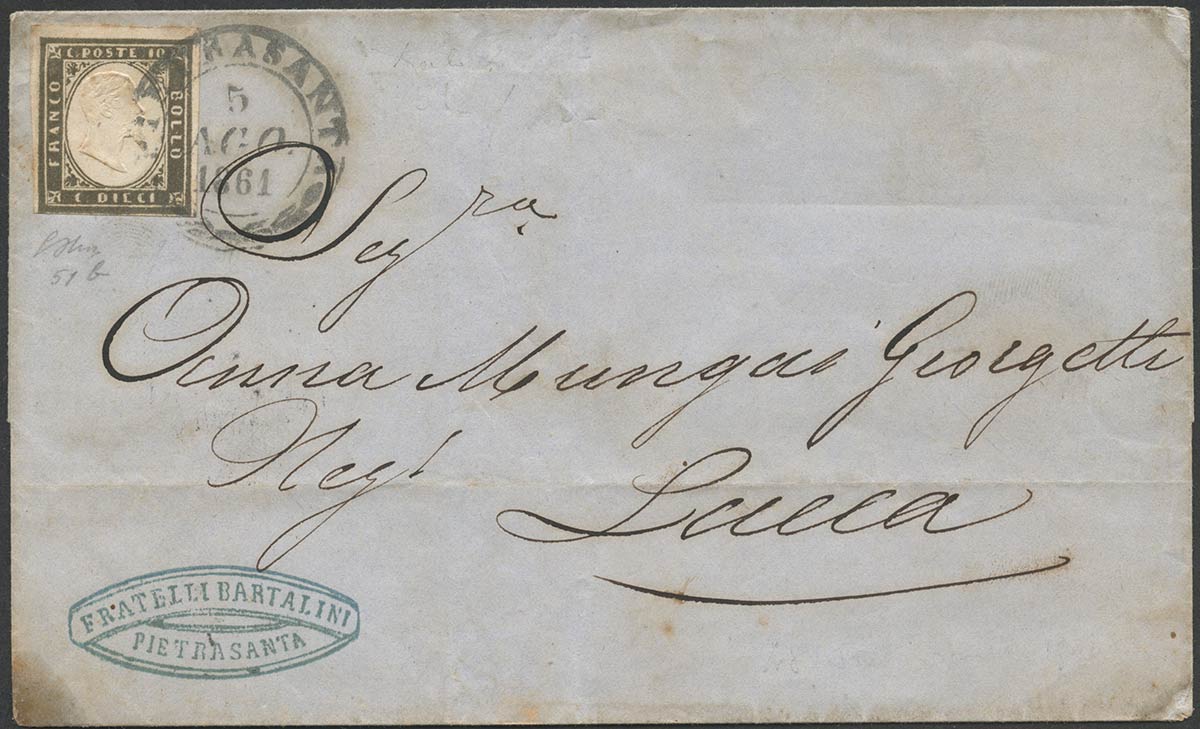 C. POSTE 10
FRANCO
BOLLO
C. DIECI
PIETRASANTA
5
AGO.
1861
Seg.ra
Anna Mungai Georgetti
Neg.t
Lucca
51 b
FRATELLI BARTALINI
PIETRASANTA